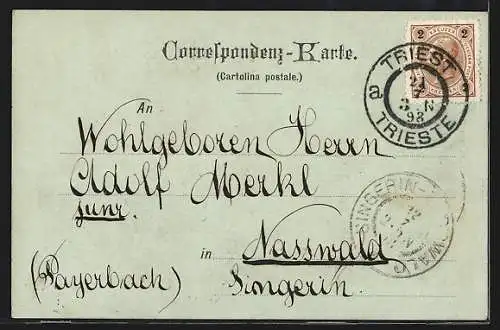 Correspondenz-Karte.
(Cartolina postale.)
2 2
TRIEST
TRIESTE
a
98
An
Wohlgeboren Herrn
Adolf Merkl
junr.
in Nasswald
(Payerbach) Singerin
SINGERIN-
WALD